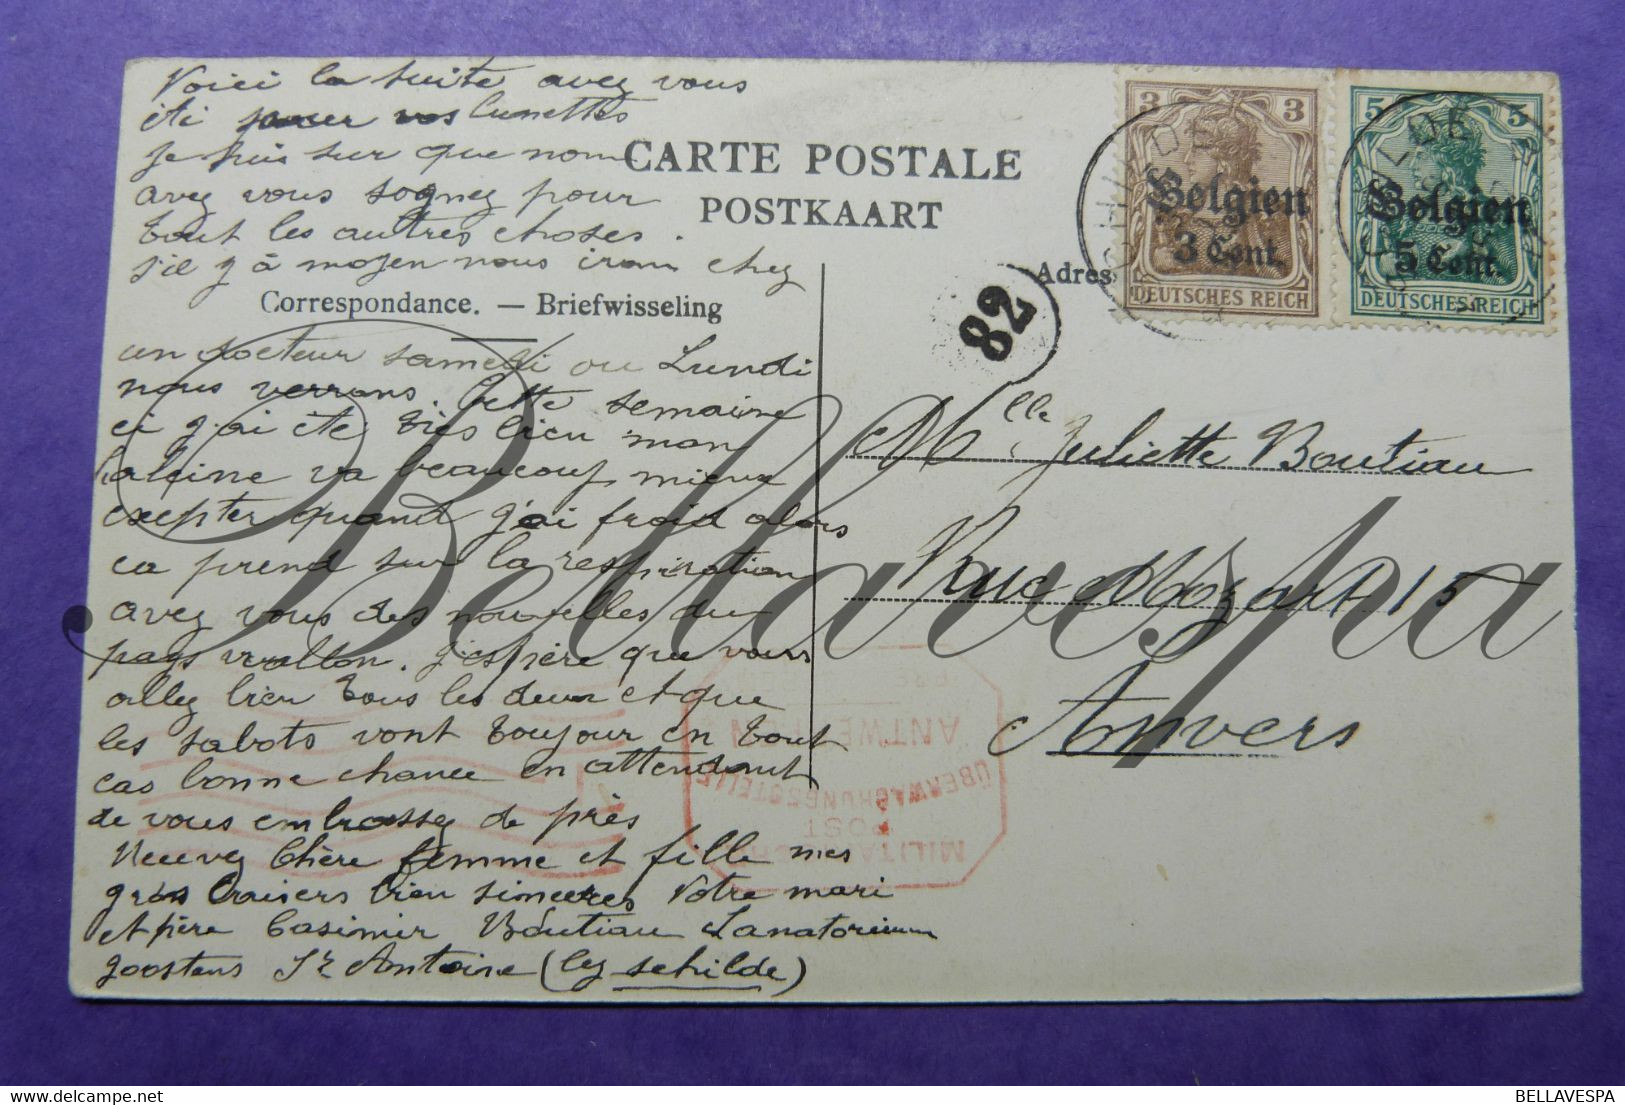 Voici la suite avez vous
éti jouer vos lunettes
je suis sur que nom
avez vous sognez pour
tout les autres choses.
s'il y à mozen nous iron chez
CARTE POSTALE
POSTKAART
Correspondance. — Briefwisseling
un docteur samedi ou Lundi
nous verrons. Cette semaine
ci j'ai été très bien mon
haleine va beaucoup mieux
exepter quand j'ai froid alors
ca prend sur la respiration
avez vous des nouvelles du
pays wallon. j'espère que vous
allez bien tous les deux et que
les sabots vont toujour en tout
cas bonne chance en attendant
de vous embrassez de près
Recevez Chère femme et fille mes
gros baisers bien sincères Votre mari
et père Casimir Boutiau Sanatorium
goostens St Antoine (lez schilde)
3 3
Belgien
3 Cent.
DEUTSCHES REICH
5 5
Belgien
5 Cent.
DEUTSCHES REICH
SCHILDE
SCHILDE
82
Adres
Mlle Juliette Boutiau
Rue Mozart 15
Anvers
ANTWERPEN
ÜBERWACHUNGSSTELLE
POST
MILITÄRISCHE
Bellavespa
BELLAVESPA